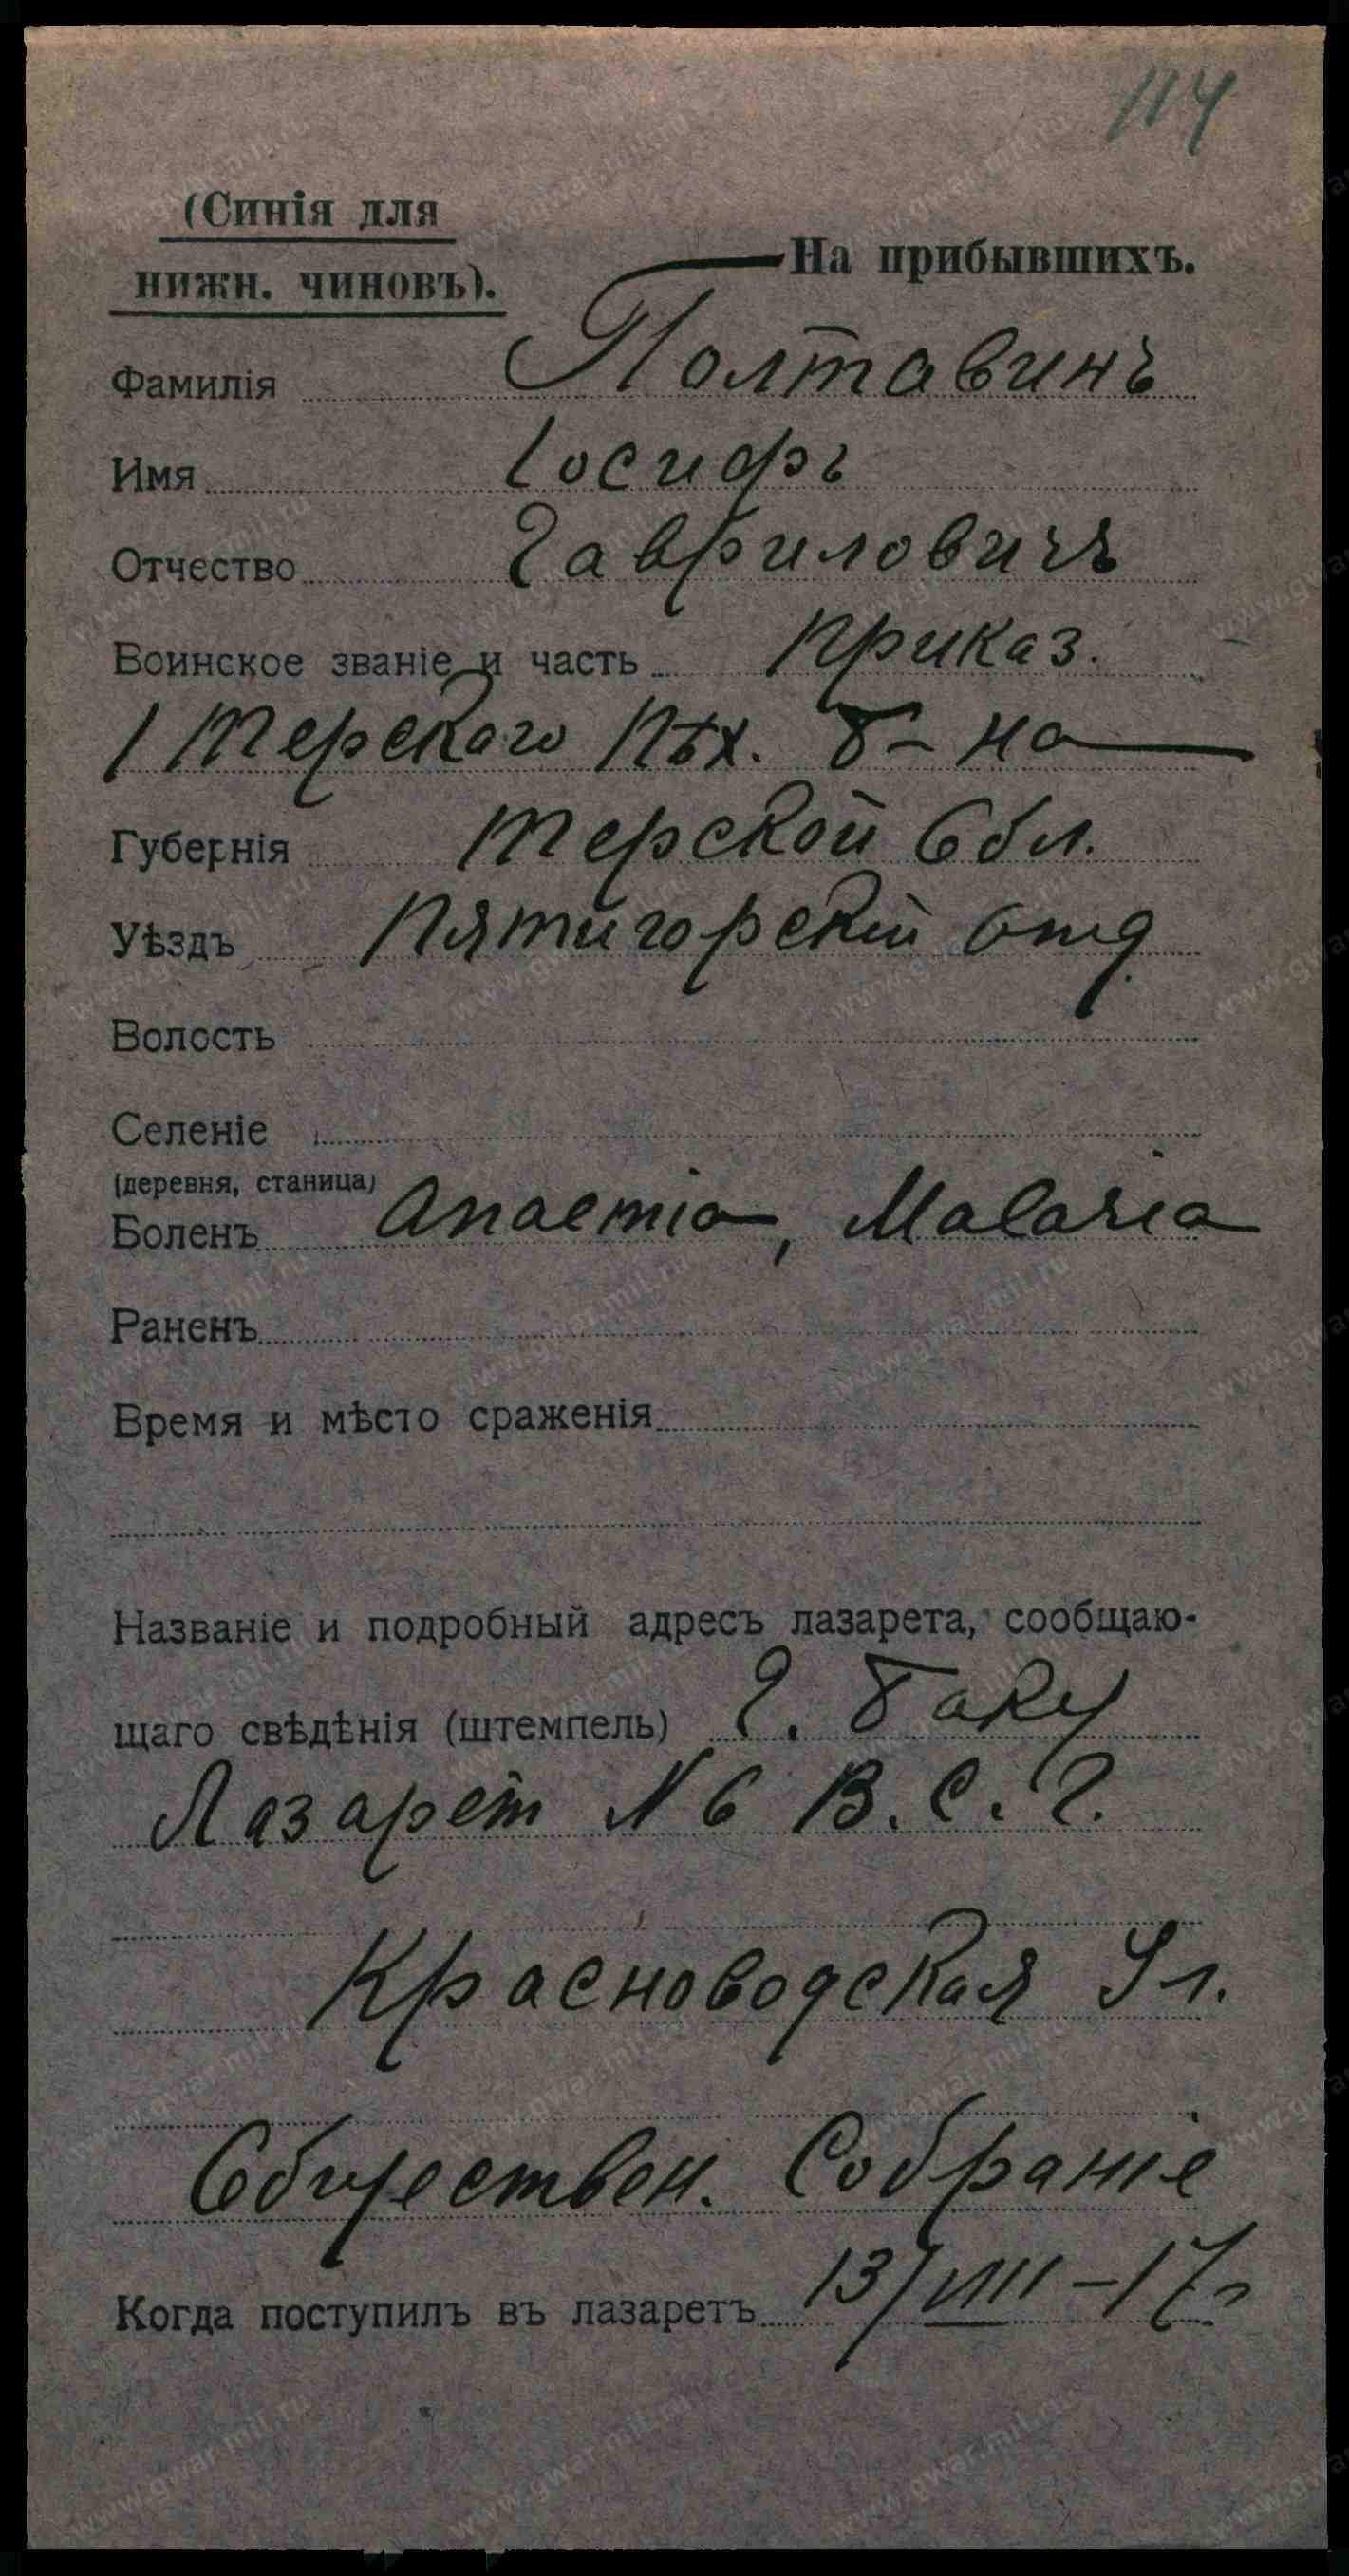 114
(Синія для
нижн. чиновъ).
На прибывшихъ.
Фамилія Полтавинъ
Имя Іосифъ
Отчество Гавриловичъ
Воинское званіе и часть приказ.
1 Терскаго Пѣх. б-на
Губернія Терской Обл.
Уѣздъ Пятигорскій отд.
Волость
Селеніе
(деревня, станица)
Боленъ Anaemia, Malaria
Раненъ
Время и мѣсто сраженія
Названіе и подробный адресъ лазарета, сообщаю-
щаго свѣдѣнія (штемпель) г. Баку
Лазарет N 6 В. С. Г.
Красноводская Ул.
Обществен. Собраніе
Когда поступилъ въ лазаретъ 13/VIII-17г